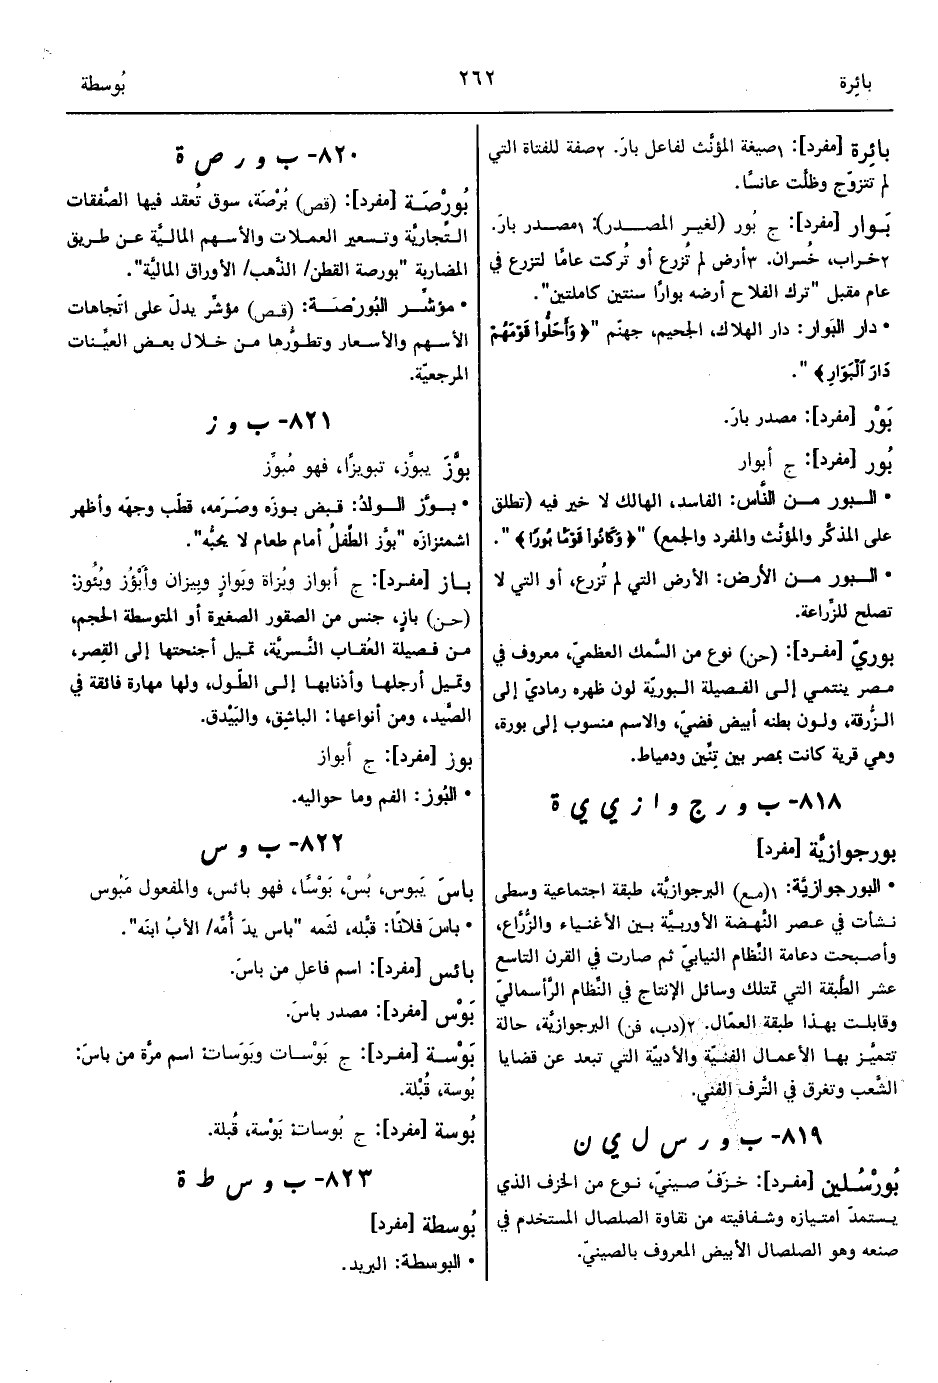 بائِرة
٢٦٢
بُوسطة
بائِرة [مفرد]: ١صيغة المؤنَّث لفاعل بارَ. ٢صفة للفتاة التي
لم تتزوّج وظلّت عانسًا.
بَوار [مفرد]: ج بُور (لغير المصدر): ١مصدر بارَ.
٢خراب، خُسران. ٣أرض لم تُزرع أو تُركت عامًا لتزرع في
عام مقبل "ترك الفلاح أرضه بوارًا سنتين كاملتين".
• دار البَوار: دار الهلاك، الجحيم، جهنّم "﴿وَأَحَلُّوا قَوْمَهُمْ
دَارَ ٱلْبَوَارِ﴾".
بَوْر [مفرد]: مصدر بارَ.
بُور [مفرد]: ج أبوار
• البور من النَّاس: الفاسد، الهالك لا خير فيه (تطلق
على المذكَّر والمؤنَّث والمفرد والجمع) "﴿وَكَانُوا قَوْمًا بُورًا﴾".
• البور من الأرض: الأرض التي لم تُزرع، أو التي لا
تصلح للزِّراعة.
بوريّ [مفرد]: (حن) نوع من السَّمك العظميّ، معروف في
مصر ينتمي إلى الفصيلة البوريّة لون ظهره رماديّ إلى
الزُّرقة، ولون بطنه أبيض فضيّ، والاسم منسوب إلى بورة،
وهي قرية كانت بمصر بين تِنِّين ودمياط.
٨١٨- ب و ر ج و ا ز ي ي ة
بورجوازيَّة [مفرد]
• البورجوازيَّة: ١(مع) البرجوازيَّة، طبقة اجتماعية وسطى
نشأت في عصر النَّهضة الأوربيَّة بين الأغنياء والزُّرَّاع،
وأصبحت دعامة النِّظام النيابيّ ثم صارت في القرن التاسع
عشر الطَّبقة التي تمتلك وسائل الإنتاج في النِّظام الرَّأسماليّ
وقابلت بهذا طبقة العمّال. ٢(دب، فن) البرجوازيَّة، حالة
تتميَّز بها الأعمال الفنيَّة والأدبيَّة التي تبعد عن قضايا
الشَّعب وتغرق في التَّرف الفنّي.
٨١٩- ب و ر س ل ي ن
بُورْسُلين [مفرد]: خزَفٌ صينيّ، نوع من الخزف الذي
يستمدّ امتيازه وشفافيته من نقاوة الصلصال المستخدم في
صنعه وهو الصلصال الأبيض المعروف بالصينيّ.
٨٢٠- ب و ر ص ة
بُورْصَة [مفرد]: (قص) بُرْصَة، سوق تُعقد فيها الصَّفقات
التِّجاريَّة وتسعير العملات والأسهم الماليَّة عن طريق
المضاربة "بورصة القطن/ الذَّهب/ الأوراق الماليَّة".
• مؤشِّر البُورْصَة: (قص) مؤشِّر يدلّ على اتّجاهات
الأسهم والأسعار وتطوُّرها من خلال بعض العيِّنات
المرجعيّة.
٨٢١- ب و ز
بوَّزَ يبوِّز، تبويزًا، فهو مُبوِّز
• بوَّز الولدُ: قبض بوزَه وضَرَمَه، قطّب وجهَه وأظهر
اشمئزازَه "بوَّز الطِّفلُ أمام طعام لا يحبُّه".
باز [مفرد]: ج أبواز وبُزاة وبَوازٍ وبيزان وأَبْؤُز وبُئُوز:
(حن) بازٍ، جنس من الصقور الصغيرة أو المتوسطة الحجم،
من فصيلة العُقاب النَّسرية، تميل أجنحتها إلى القِصر،
وتميل أرجلها وأذنابها إلى الطّول، ولها مهارة فائقة في
الصَّيد، ومن أنواعها: الباشق، والبَيْدق.
بوز [مفرد]: ج أبواز
• البُوز: الفم وما حواليه.
٨٢٢- ب و س
باسَ يَبوس، بُسْ، بَوْسًا، فهو بائس، والمفعول مَبُوس
• باسَ فلانًا: قبَّله، لثمه "باس يدَ أُمِّه/ الأبُ ابنَه".
بائس [مفرد]: اسم فاعل من باسَ.
بَوْس [مفرد]: مصدر باسَ.
بَوْسة [مفرد]: ج بَوْسات وبَوَسات: اسم مرَّة من باسَ:
بُوسة، قُبْلة.
بُوسة [مفرد]: ج بُوسات: بَوْسة، قُبلة.
٨٢٣- ب و س ط ة
بُوسطة [مفرد]
• البوسطة: البريد.